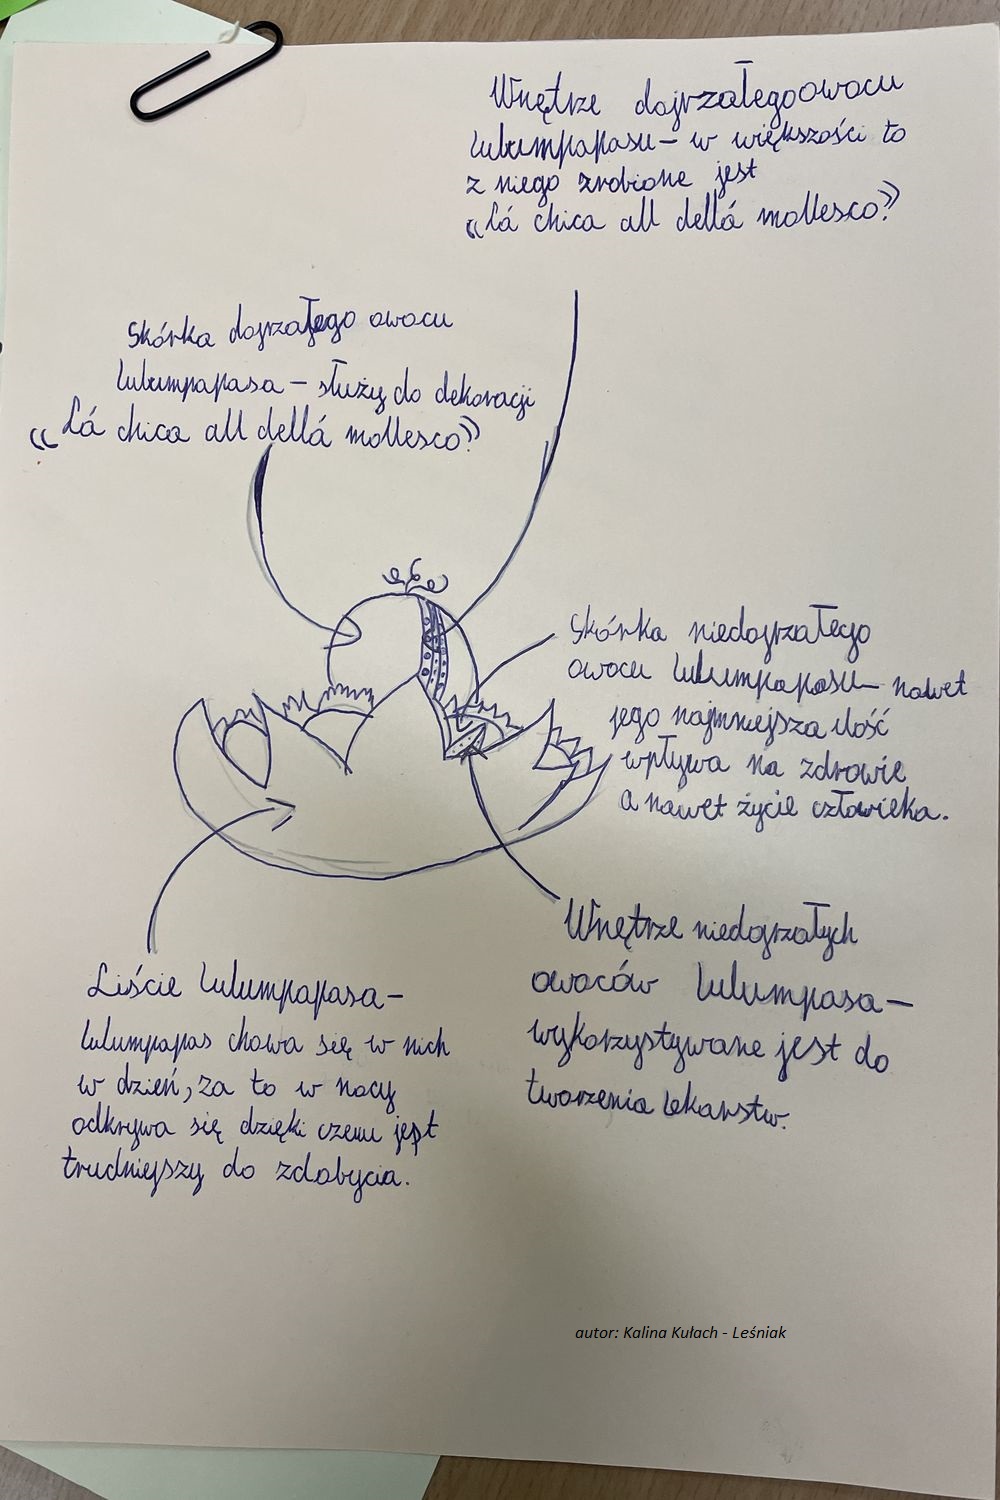 Wnętrze dojrzałego owocu
lulumpapasu – w większości to
z niego zrobione jest
„Lá chica all dellá mollesco”
Skórka dojrzałego owocu
lulumpapasa – służy do dekoracji
„Lá chica all dellá mollesco”
Skórka niedojrzałego
owocu lulumpapasu – nawet
jego najmniejsza ilość
wpływa na zdrowie
a nawet życie człowieka.
Wnętrze niedojrzałych
owoców lulumpasa –
wykorzystywane jest do
tworzenia lekarstw.
Liście lulumpapasa –
lulumpapas chowa się w nich
w dzień, za to w nocy
odkrywa się dzięki czemu jest
trudniejszy do zdobycia.
autor: Kalina Kułach - Leśniak